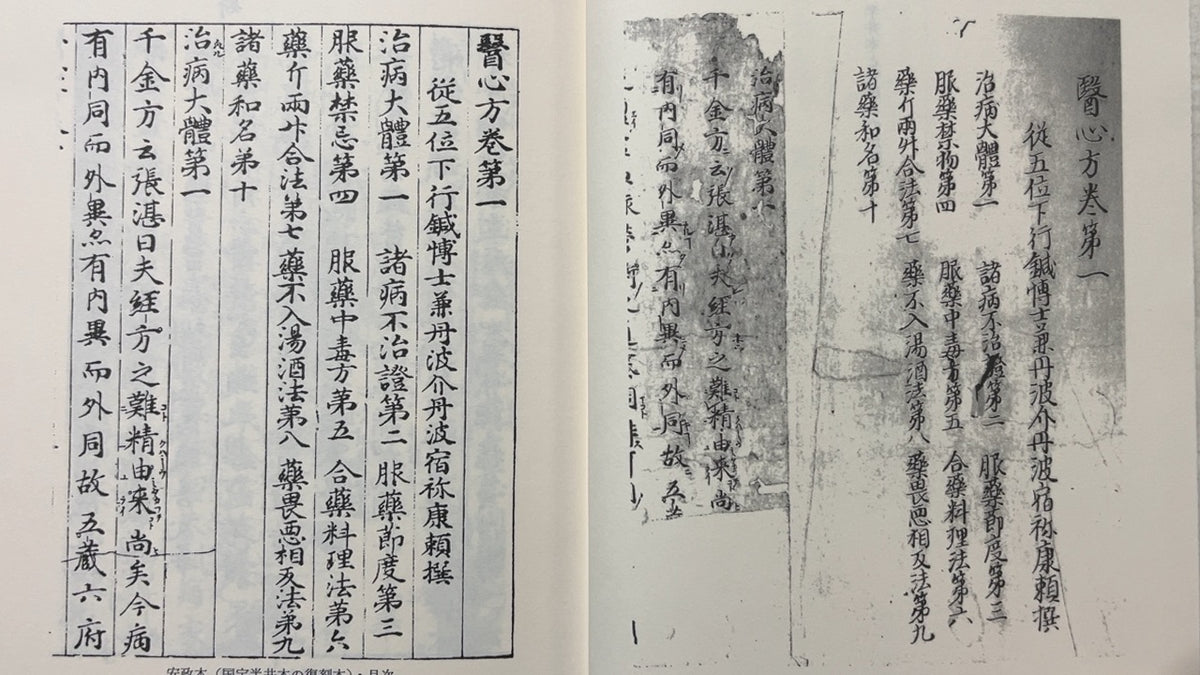 醫心方卷第一
從五位下行鍼博士兼丹波介丹波宿祢康頼撰
治病大體第一 諸病不治證第二 服藥節度第三
服藥禁物第四 服藥中毒方第五 合藥料理法第六
藥斤兩升合法第七 藥不入湯酒法第八 藥畏惡相反法第九
諸藥和名第十
治病大體第一
千金方云張湛曰夫經方之難精由来尚
有内同而外異亦有内異而外同故五
醫心方卷第一
從五位下行鍼博士兼丹波介丹波宿祢康頼撰
治病大體第一 諸病不治證第二 服藥節度第三
服藥禁忌第四 服藥中毒方第五 合藥料理法第六
藥斤兩升合法第七 藥不入湯酒法第八 藥畏惡相反法第九
諸藥和名第十
治病大體第一
千金方云張湛曰夫經方之難精由来尚矣今病
有内同而外異亦有内異而外同故五蔵六府
安政本（国宝半井本の復刻本）・目次